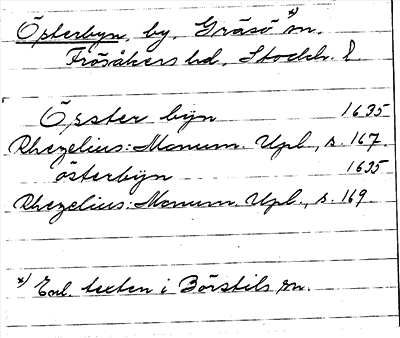 Österbyn, by, Gräsö *) sn.
Frösåkers hd, Stockh. l.
Örster bÿn 1635
Rhezelius: Monum. Upl., s. 167.
österbÿn 1635
Rhezelius: Monum. Upl., s. 169.
*) Enl. texten i Börstils sn.